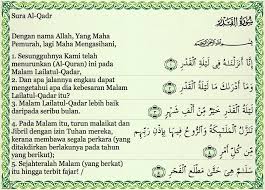 Sura Al-Qadr
Dengan nama Allah, Yang Maha
Pemurah, lagi Maha Mengasihani,
1. Sesungguhnya Kami telah
menurunkan (Al-Quran) ini pada
Malam Lailatul-Qadar,
2. Dan apa jalannya engkau dapat
mengetahui apa dia kebesaran
Malam Lailatul-Qadar itu?
3. Malam Lailatul-Qadar lebih baik
daripada seribu bulan.
4. Pada Malam itu, turun malaikat dan
Jibril dengan izin Tuhan mereka,
kerana membawa segala perkara (yang
ditakdirkan berlakunya pada tahun
yang berikut);
5. Sejahteralah Malam (yang berkat)
itu hingga terbit fajar! /
سُورَةُ الْقَدْرِ
بِسْمِ اللَّهِ الرَّحْمَٰنِ الرَّحِيمِ
إِنَّا أَنزَلْنَاهُ فِي لَيْلَةِ الْقَدْرِ ﴿١﴾
وَمَا أَدْرَاكَ مَا لَيْلَةُ الْقَدْرِ ﴿٢﴾
لَيْلَةُ الْقَدْرِ خَيْرٌ مِّنْ أَلْفِ شَهْرٍ ﴿٣﴾
تَنَزَّلُ الْمَلَائِكَةُ وَالرُّوحُ فِيهَا بِإِذْنِ رَبِّهِم
مِّن كُلِّ أَمْرٍ ﴿٤﴾
سَلَامٌ هِيَ حَتَّىٰ مَطْلَعِ الْفَجْرِ ﴿٥﴾